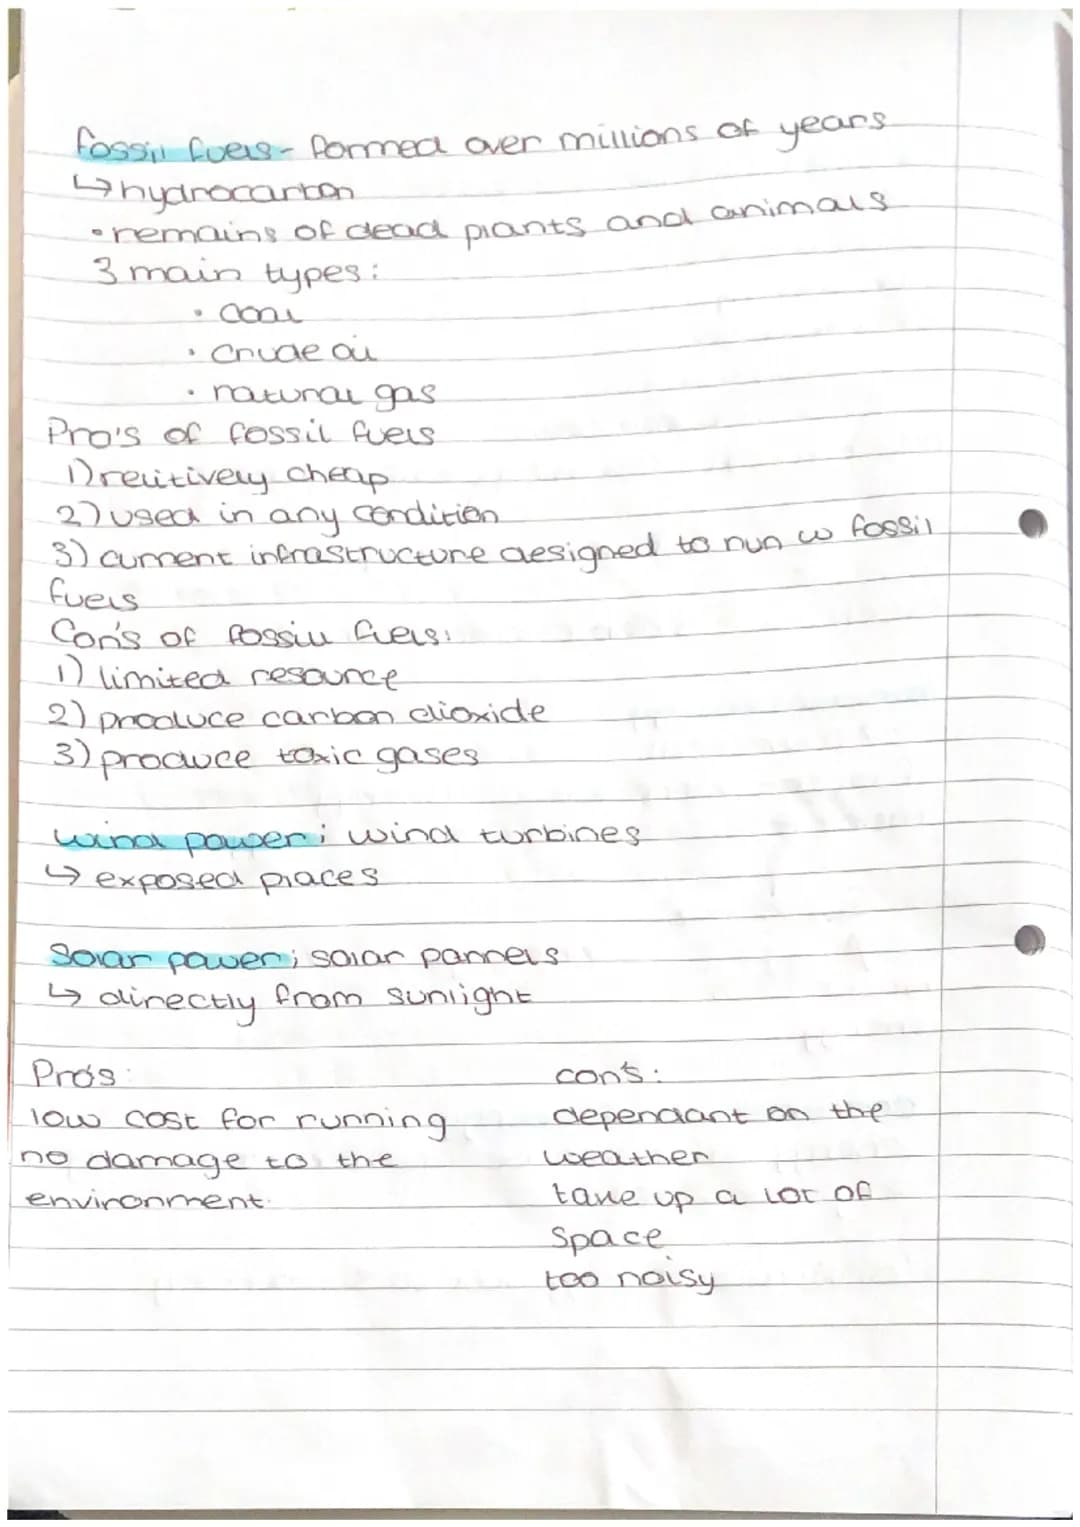 fossil fuels - formed over millions of years
↳ hydrocarbon
• remains of dead plants and animals
3 main types:
• coal
• crude oil
• natural gas
Pro's of fossil fuels
1) relitively cheap
2) used in any condition
3) current infrastructure designed to run w fossil
fuels
Con's of fossil fuels:
1) limited resource
2) produce carbon dioxide
3) produce toxic gases
wind power; wind turbines
↳ exposed places
Solar power; solar pannels
↳ directly from sunlight
Pro's:
low cost for running
no damage to the
environment.
con's:
dependant on the
weather
take up a lot of
space
too noisy